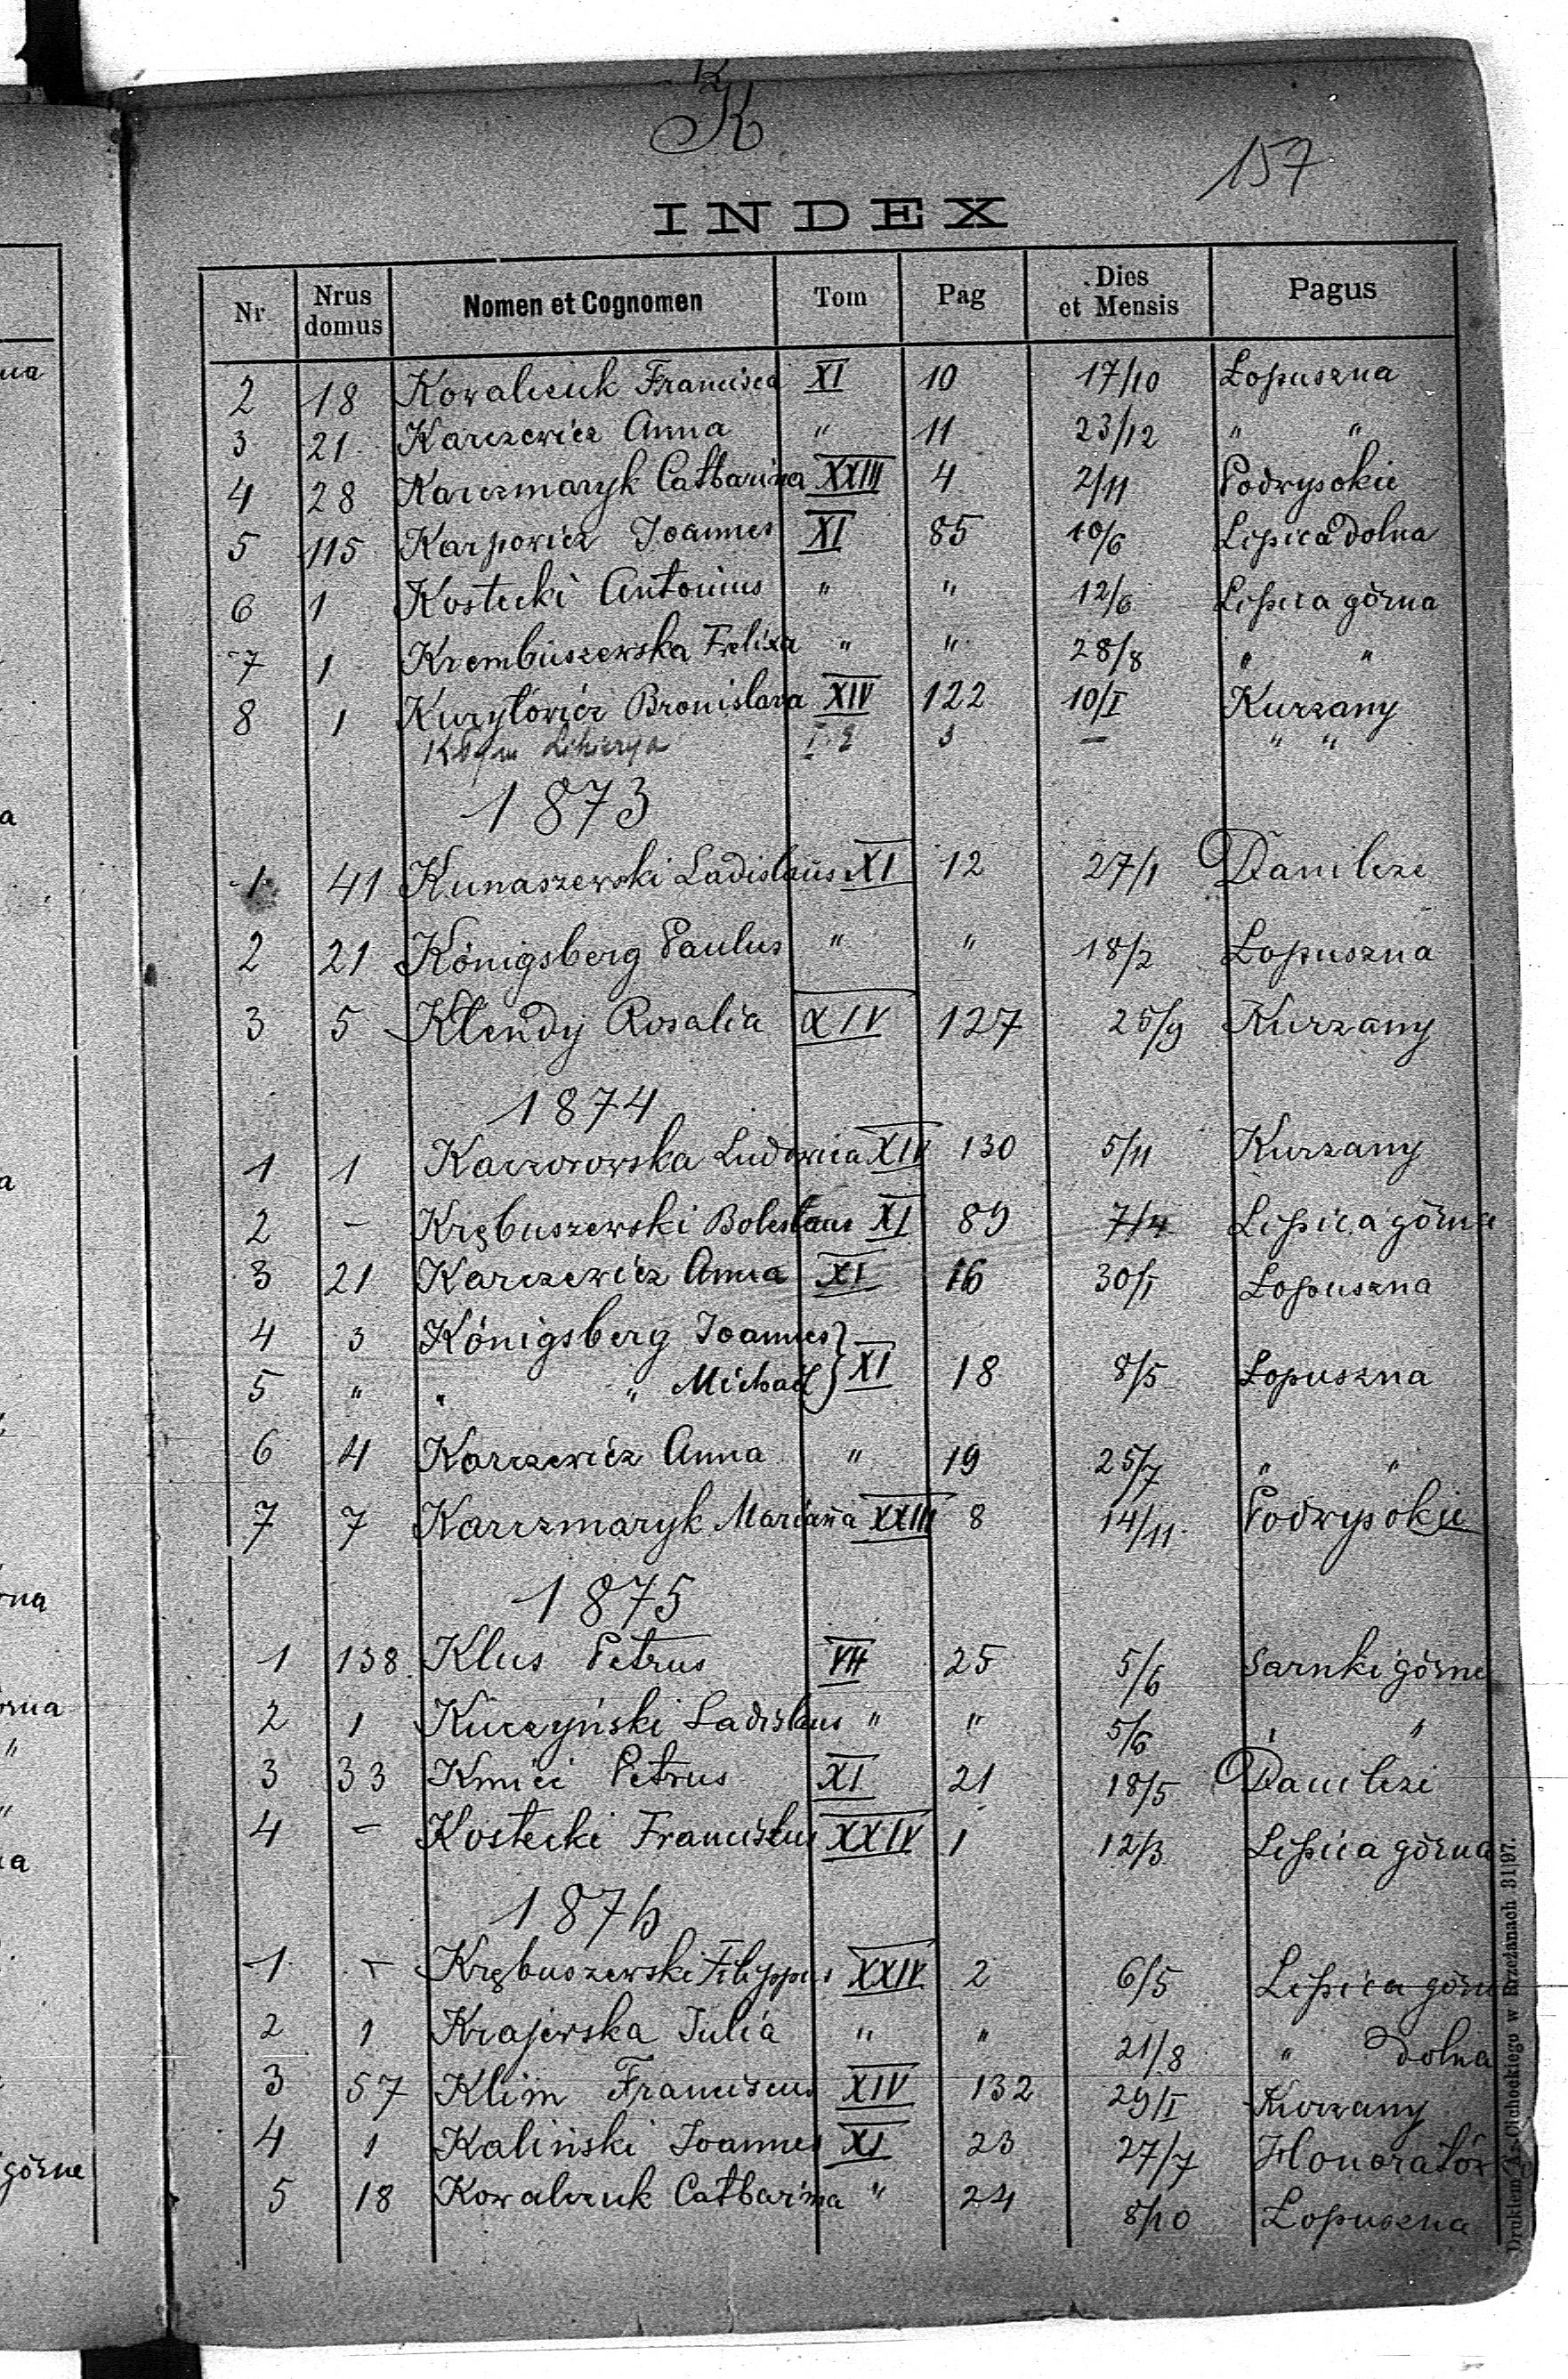 K
157
INDEX
Nr. Nrus domus Nomen et Cognomen Tom Pag Dies et Mensis Pagus
2 18 Kowalczuk Francisca XI 10 17/10 Łopuszna
3 21 Karczewicz Anna " 11 23/12 " "
4 28 Karczmaryk Catharina XXIII 4 2/11 Podwysokie
5 115 Karpowicz Joannes XI 85 10/6 Lipica dolna
6 1 Kostecki Antonius " " 12/6 Lipica górna
7 1 Krembuszewska Felixa " " 28/8 " "
8 1 Kuryłowicz Bronislava XIV 122 10/I Kurzany
3 — " "
1873
1 41 Kunaszewski Ladislaus XI 12 27/1 Danilcze
2 21 Königsberg Paulus " " 18/2 Łopuszna
3 5 Klendy Rosalia XIV 127 25/9 Kurzany
1874
1 1 Kaczorowska Ludowica XIV 130 5/11 Kurzany
2 – Krębuszewski Boleslaus XI 89 7/4 Lipica górna
3 21 Karczewicz Anna XI 16 30/I Łopuszna
4 3 Königsberg Joannes }
5 " " " Michael } XI 18 8/5 Łopuszna
6 4 Karczewicz Anna " 19 25/7 " "
7 7 Karczmaryk Marianna XXIII 8 14/11 Podwysokie
1875
1 138 Klus Petrus VII 25 5/6 Sarnki górne
2 1 Kuczyński Ladislaus " " 5/6 " "
3 33 Kmieć Petrus XI 21 18/5 Danilcze
4 – Kostecki Franciscus XXIV 1 12/3 Lipica górna
1876
1 – Krębuszewski Filippus XXIV 2 6/5 Lipica górna
2 1 Krajewska Julia " " 21/8 " dolna
3 57 Klim Franciscus XIV 132 29/I Kurzany
4 1 Kaliński Joannes XI 23 27/7 Honoratów
5 18 Kowalczuk Catharina " 24 8/10 Łopuszna
w Brzeżanach 31|97.